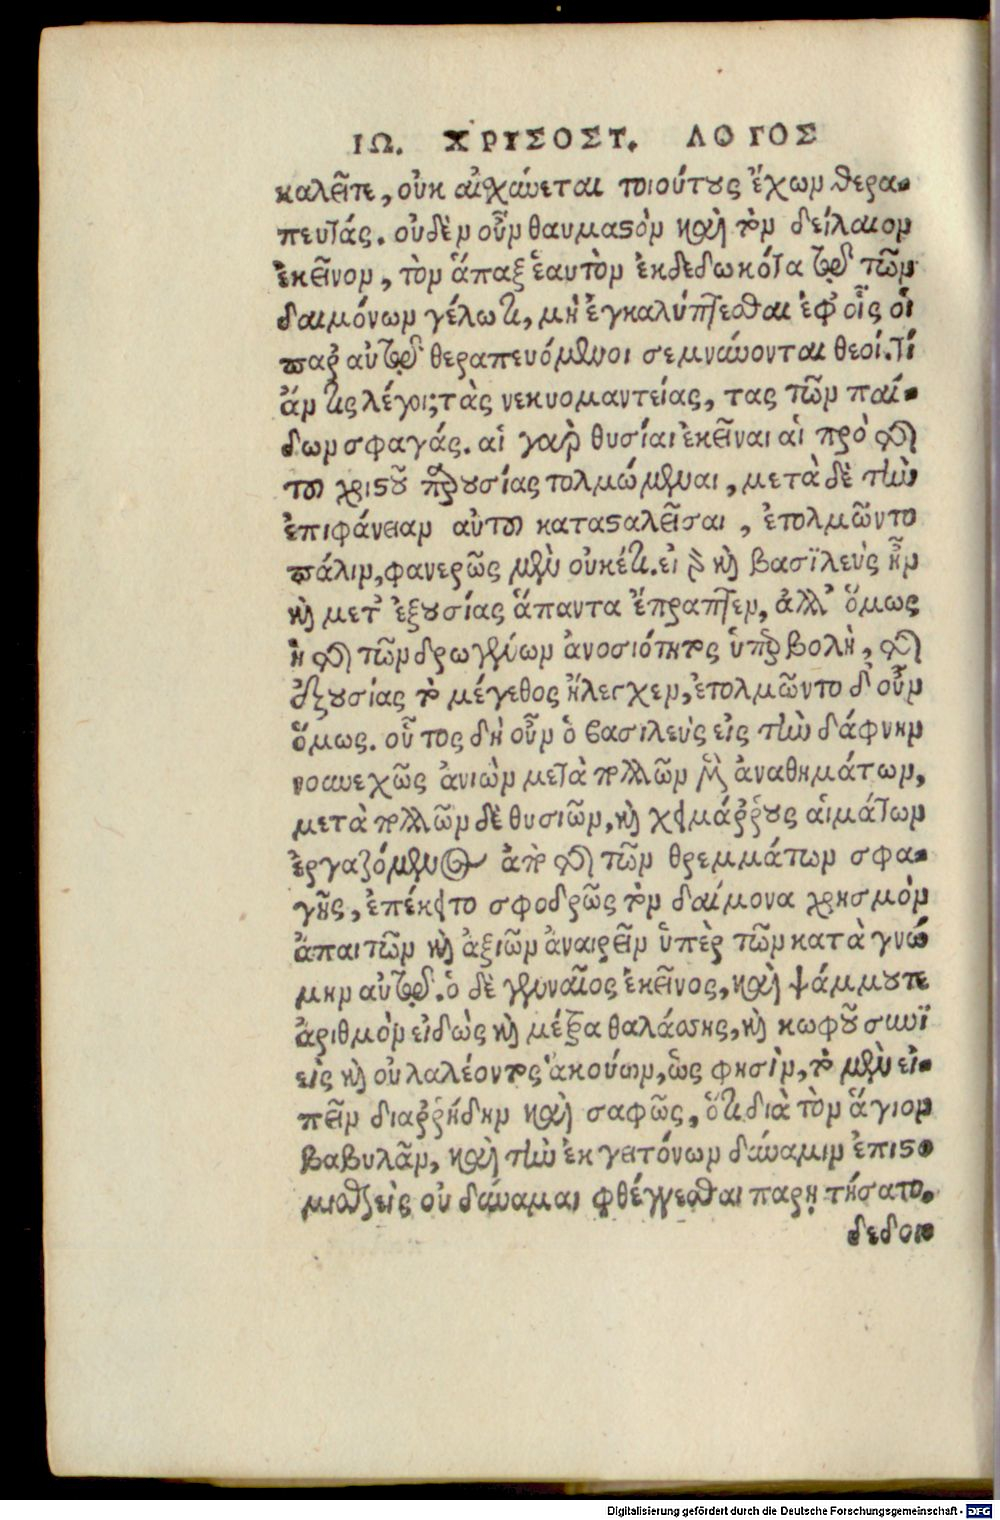 ΙΩ. ΧΡΥΣΟΣΤ. ΛΟΓΟΣ
καλεῖτε, οὐκ αἰσχύνεται τοιούτους ἔχων θερα-
πευτάς. οὐδὲν οὖν θαυμαστὸν καὶ τὸν δείλαιον
ἐκεῖνον, τὸν ἅπαξ ἑαυτὸν ἐκδεδωκότα τῷ τῶν
δαιμόνων γέλωτι, μὴ ἐγκαλύπτεσθαι ἐφ᾽ οἷς οἱ
παρ᾽ αὐτῷ θεραπευόμενοι σεμνύονται θεοί. τί
ἄν τις λέγοι; τὰς νεκυομαντείας, τας τῶν παί-
δων σφαγάς. αἱ γαρ θυσίαι ἐκεῖναι αἱ πρὸ τῆς
τοῦ χριστοῦ παρουσίας τολμώμεναι, μετὰ δὲ τὴν
ἐπιφάνειαν αὐτοῦ κατασταλεῖσαι, ἐτολμῶντο
πάλιν, φανερῶς μὲν οὐκέτι. εἰ γὰρ καὶ βασϊλεὺς ἦν
καὶ μετ᾽ ἐξουσίας ἅπαντα ἔπραττεν, ἀλλ᾽ ὅμως
ἡ τῆς τῶν δρωμένων ἀνοσιότητος ὑπερβολὴ, τῆς
ἐξουσίας τὸ μέγεθος ἤλεγχεν, ἐτολμῶντο δ᾽ οὖν
ὅμως. οὗτος δὴ οὖν ὁ βασιλεὺς εἰς τὴν δάφνην
συνεχῶς ἀνιὼν μετὰ πολλῶν μὲν ἀναθημάτων,
μετὰ πολλῶν δὲ θυσιῶν, καὶ χειμάῤῥους αἱμάτων
ἐργαζόμενος ἀπὸ τῆς τῶν θρεμμάτων σφα-
γῆς, ἐπέκειτο σφοδρῶς τὸν δαίμονα χρησμὸν
ἀπαιτῶν καὶ ἀξιῶν ἀναιρεῖν ὑπὲρ τῶν κατὰ γνώ
μην αὐτῷ. ὁ δὲ γενναῖος ἐκεῖνος, καὶ ψάμμου τε
ἀριθμὸν εἰδὼς καὶ μέτρα θαλάσσης, καὶ κωφοῦ συνϊ
εὶς καὶ οὐ λαλέοντος ἀκούων, ὥς φησὶν, τὸ μὲν εἰ-
πεῖν διαῤῥήδην καὶ σαφῶς, ὅτι διὰ τὸν ἅγιον
βαβυλᾶν, καὶ τὴν ἐκ γειτόνων δύναμιν ἐπιστο-
μισθεὶς οὐ δύναμαι φθέγγεσθαι παρῃτήσατο.
δεδοι-
Digitalisierung gefördert durch die Deutsche Forschungsgemeinschaft - DFG